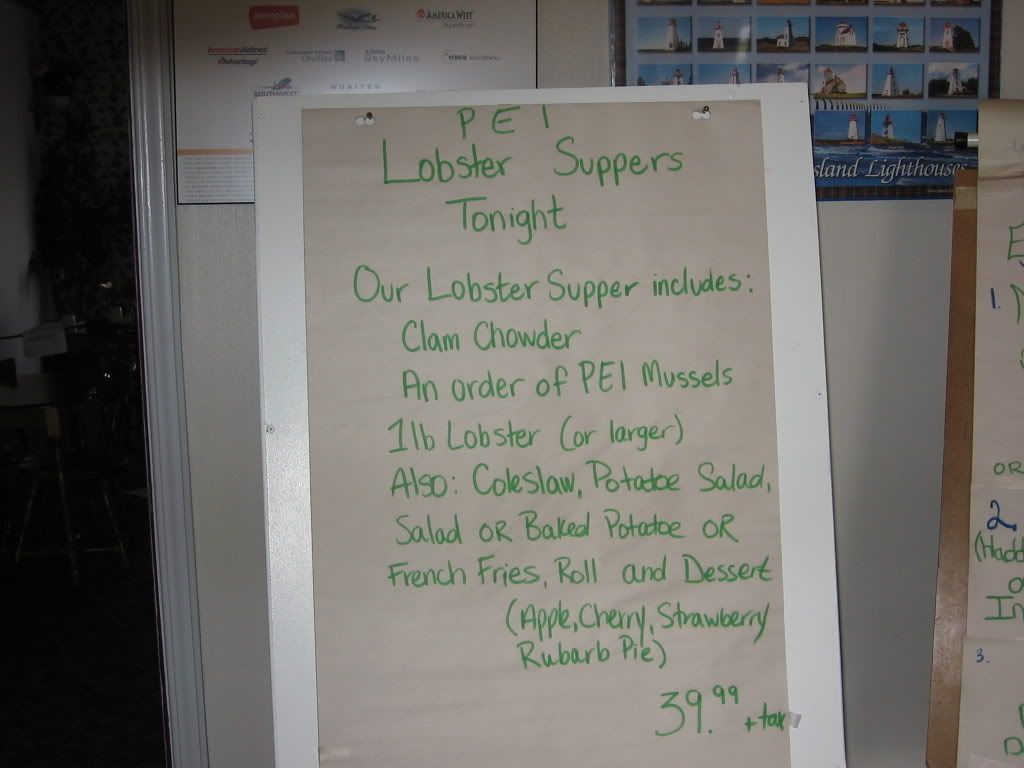 aeroplan
AMERICA WEST
AmericanAirlines
AAdvantage
Continental Airlines
OnePass
Delta
SkyMiles
nwa WorldPerks
SOUTHWEST
UNITED
sland Lighthouses
PEI
Lobster Suppers
Tonight
Our Lobster Supper includes:
Clam Chowder
An order of PEI Mussels
1lb Lobster (or larger)
Also: Coleslaw, Potatoe Salad,
Salad OR Baked Potatoe OR
French Fries, Roll and Dessert
(Apple, Cherry, Strawberry
Rubarb Pie)
39.99 + tax
1.
OR
2.
(Hadd
In
3.